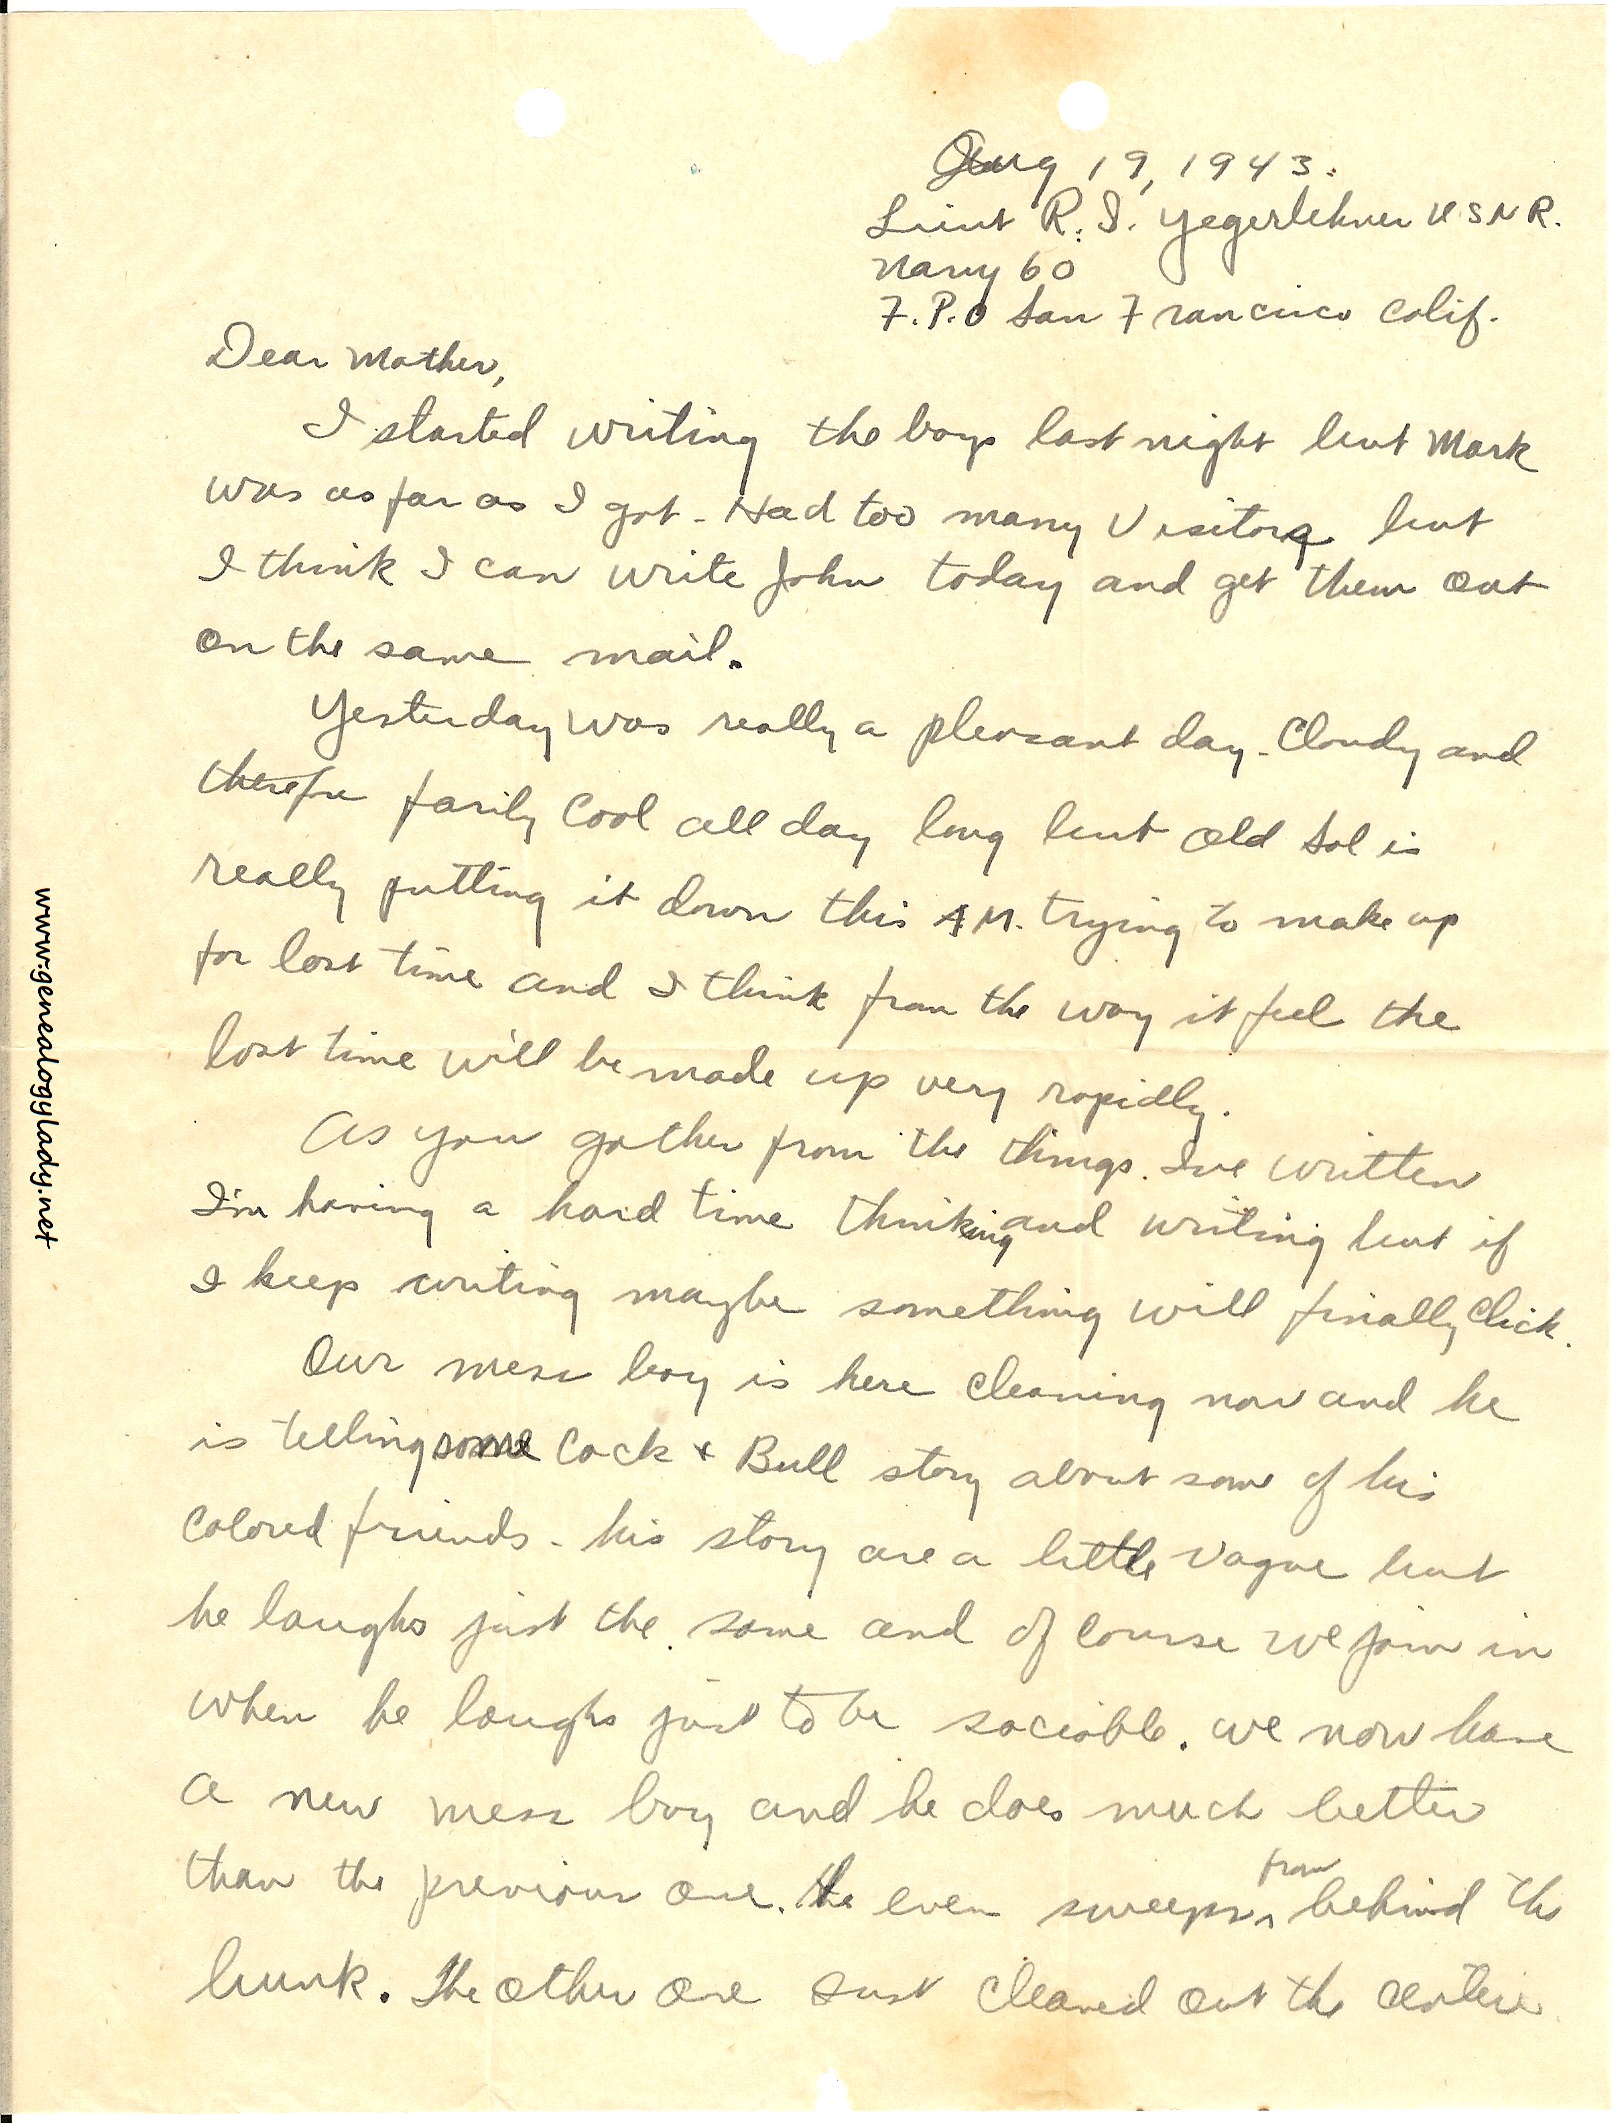 Aug 19, 1943.
Lieut R. S. Yegerlehner USNR.
Navy 60
F.P.O San Francisco Calif.
Dear Mother,
I started writing the boys last night but Mark
was as far as I got - Had too many visitors but
I think I can write John today and get them out
on the same mail.
Yesterday was really a pleasant day - Cloudy and
therefre farily cool all day long but old Sol is
really putting it down this AM. trying to make up
for lost time and I think from the way it feel the
lost time will be made up very rapidly.
As you gather from the things I've written
I'm having a hard time thinking and writing but if
I keep writing maybe something will finally click.
Our mess boy is here cleaning now and he
is telling some Cock + Bull story about some of his
colored friends - his story are a little vague but
he laughs just the same and of course we join in
when he laughs just to be sociable. We now have
a new mess boy and he does much better
than the previous one. He even sweeps from behind the
bunk. The other one just cleaned out the center
www.genealogylady.net